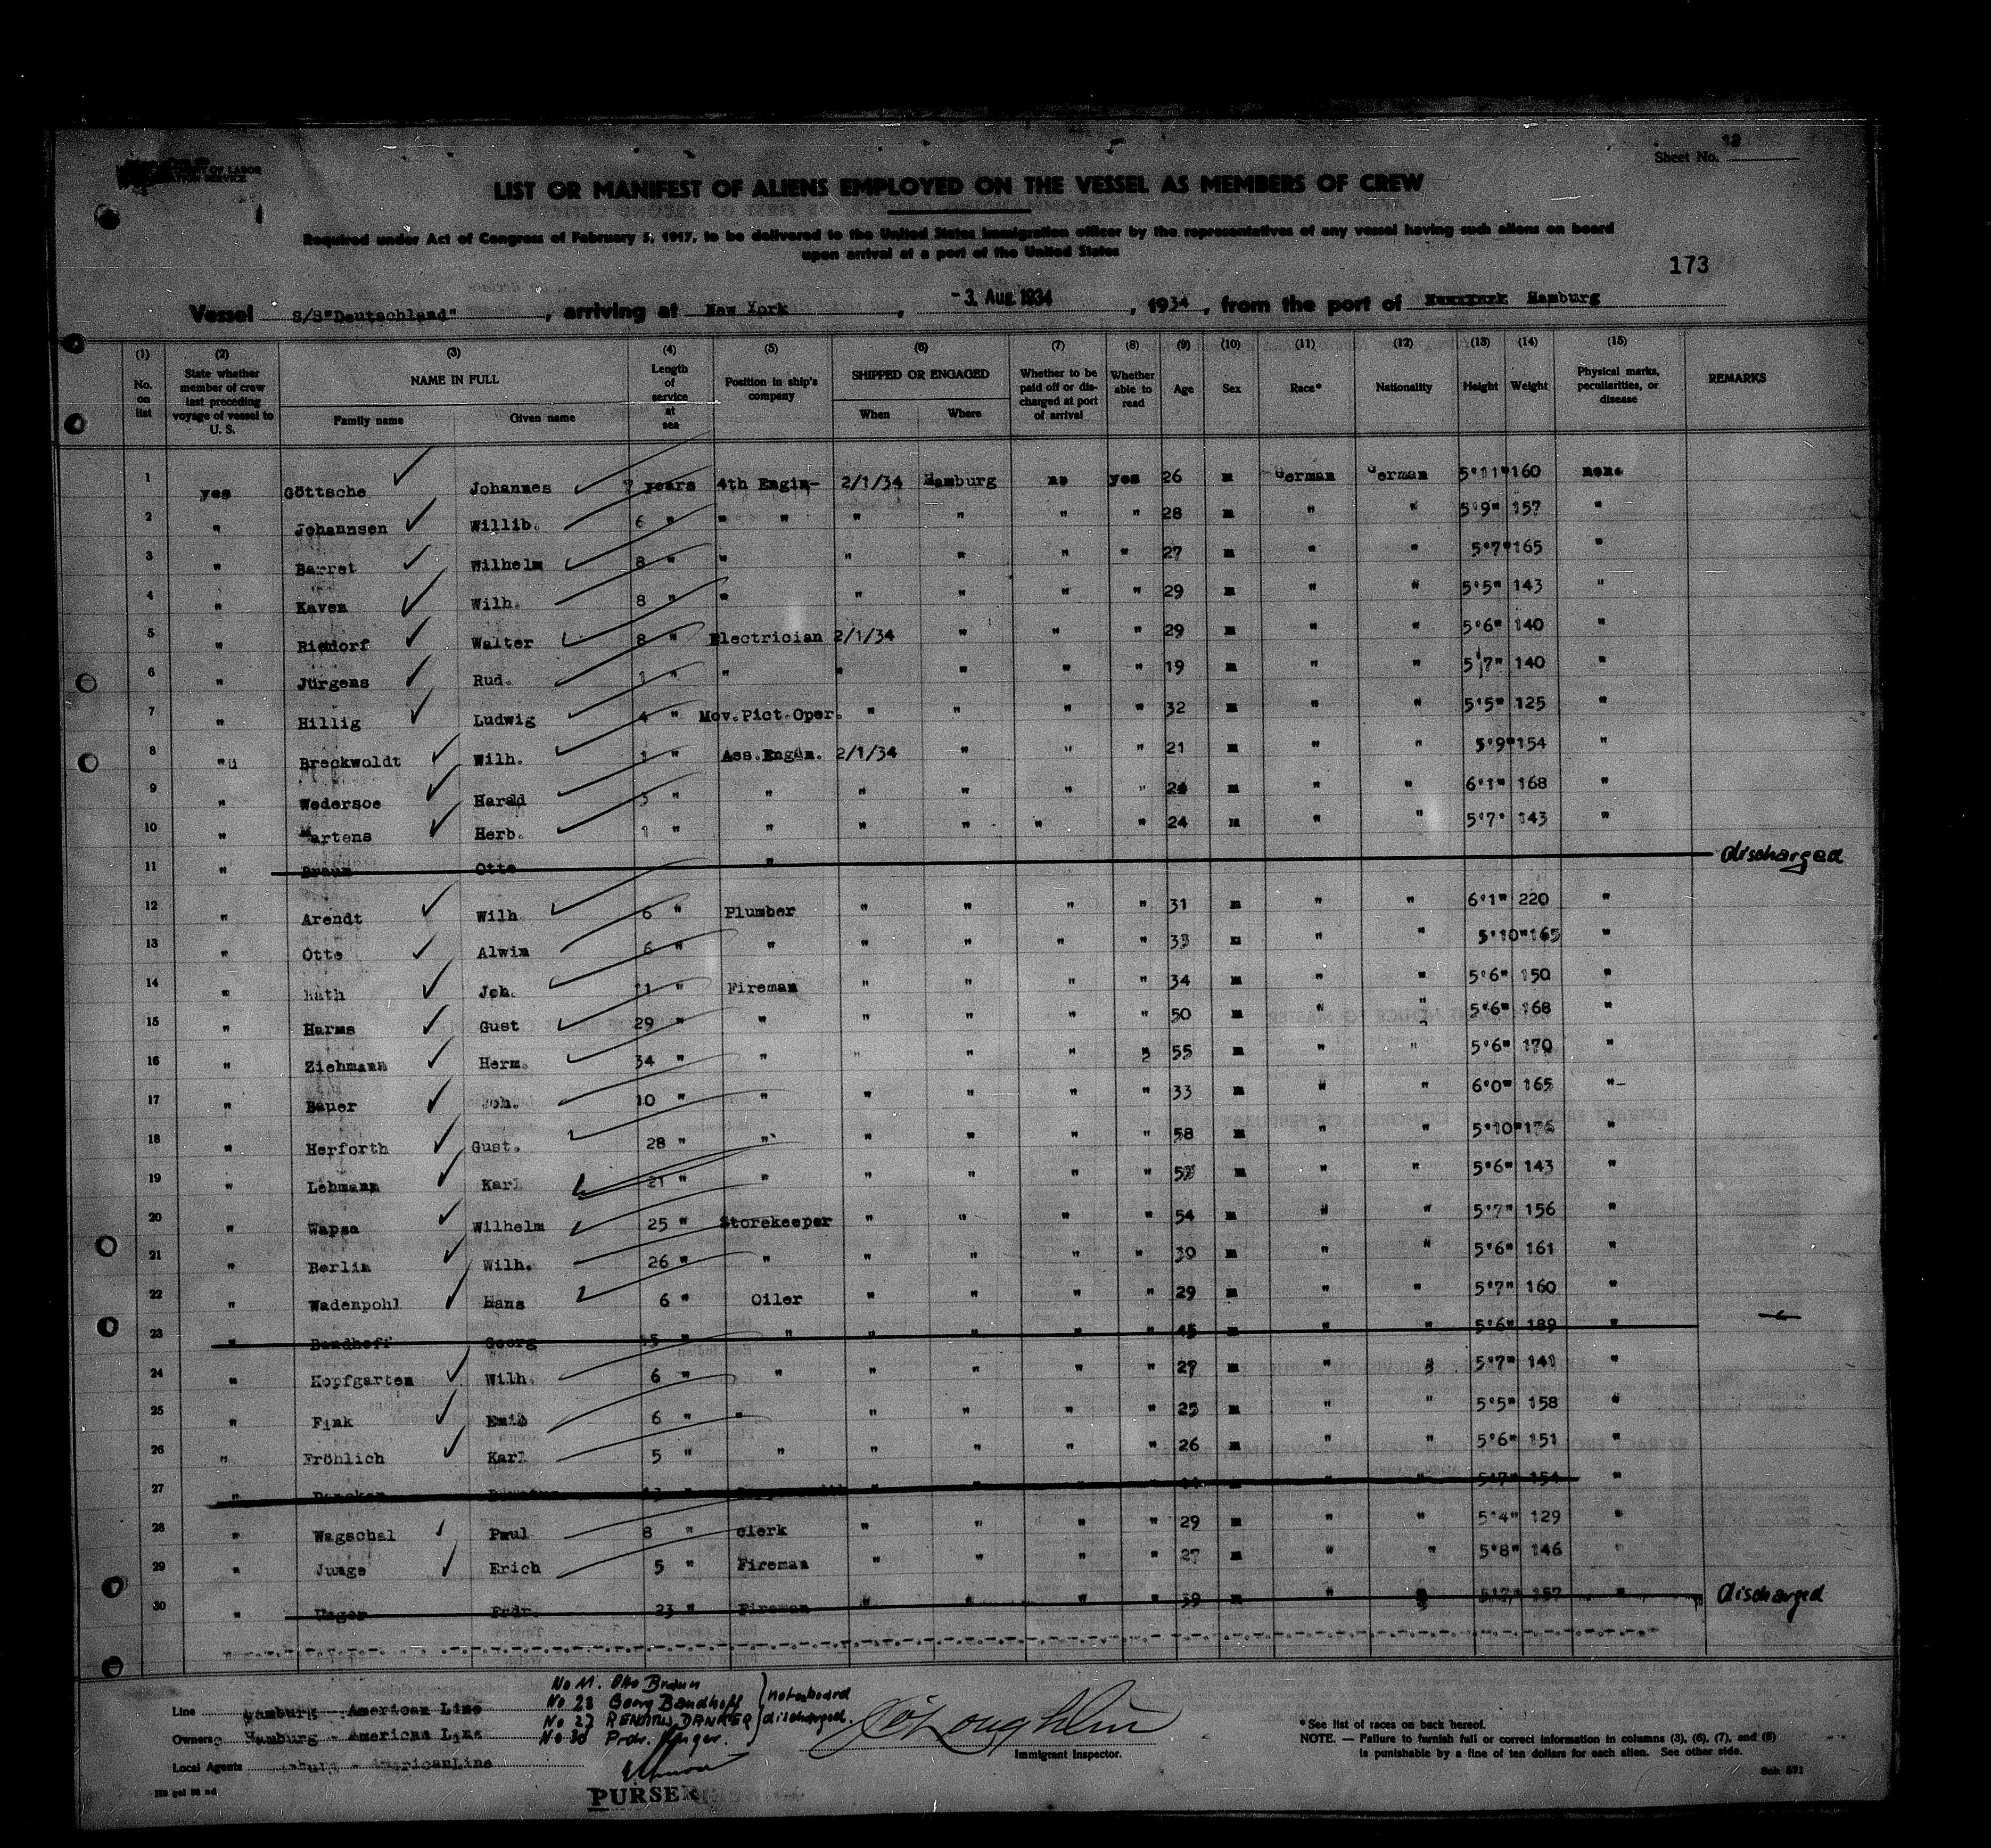 Sheet No. 12
LIST OR MANIFEST OF ALIENS EMPLOYED ON THE VESSEL AS MEMBERS OF CREW
Required under Act of Congress of February 5, 1917, to be delivered to the United States Immigration officer by the representatives of any vessel having such aliens on board
upon arrival at a port of the United States
173
Vessel S/S"Deutschland", arriving at New York, -3. Aug. 1934, 1934, from the port of Hamburg
(1) (2) (3) (4) (5) (6) (7) (8) (9) (10) (11) (12) (13) (14) (15)
No. on list State whether member of crew last preceding voyage of vessel to U. S. NAME IN FULL Family name Given name Length of service at sea Position in ship's company SHIPPED OR ENGAGED When Where Whether to be paid off or discharged at port of arrival Whether able to read Age Sex Race* Nationality Height Weight Physical marks, peculiarities, or disease REMARKS
1 yes Göttsche Johannes 7 years 4th Engin- 2/1/34 Hamburg no yes 26 m German German 5'11" 160 none
2 " Johannsen Willib. 6 " " " " " " " 28 m " " 5'9" 157 "
3 " Barret Wilhelm 8 " " " " " " 27 m " " 5'7" 165 "
4 " Kaven Wilh. 8 " " " " " " 29 m " " 5'5" 143 "
5 " Risdorf Walter 8 " Electrician 2/1/34 " " " 29 m " " 5'6" 140 "
6 " Jürgens Rud. 1 " " " " " " 19 m " " 5'7" 140 "
7 " Hillig Ludwig 4 " Mov.Pict.Oper. " " " " 32 m " " 5'5" 125 "
8 " Breckwoldt Wilh. 1 " Ass.Engin. 2/1/34 " " " 21 m " " 5'9" 154 "
9 " Wedersoe Harald 3 " " " " " " 24 m " " 6'1" 168 "
10 " Martens Herb. 1 " " " " " " 24 m " " 5'7" 143 "
11 " Braun Otto " discharged
12 " Arendt Wilh 6 " Plumber " " " " 31 m " " 6'1" 220 "
13 " Otto Alwin 6 " " " " " " 33 m " " 5'10" 165 "
14 " Rath Joh. 11 " Fireman " " " " 34 m " " 5'6" 150 "
15 " Harms Gust 29 " " " " " " 50 m " " 5'6" 168 "
16 " Ziehmann Herm. 34 " " " " " " 55 m " " 5'6" 170 "
17 " Bauer Joh. 10 " " " " " " 33 m " " 6'0" 165 "
18 " Herforth Gust. 28 " " " " " " 58 m " " 5'10" 176 "
19 " Lehmann Karl 21 " " " " " " m " " 5'6" 143 "
20 " Wapsa Wilhelm 25 " Storekeeper " " " " 54 m " " 5'7" 156 "
21 " Berlin Wilh. 26 " " " " " " 39 m " " 5'6" 161 "
22 " Wadenpohl Hans 6 " Oiler " " " " 29 m " " 5'7" 160 "
23 " Bandhoff Georg 15 " " " " " " 45 m " " 5'6" 189 "
24 " Kopfgarten Wilh. 6 " " " " " " 27 m " " 5'7" 141 "
25 " Fink Emil 6 " " " " " " 25 m " " 5'5" 158 "
26 " Fröhlich Karl 5 " " " " " " 26 m " " 5'6" 151 "
27 " 13 " " " " " m " " 5'7" 154 "
28 " Wagschal Paul 8 " clerk " " " " 29 m " " 5'4" 129 "
29 " Junge Erich 5 " Fireman " " " " 27 m " " 5'8" 146 "
30 " Unger Frdr. 23 " Fireman " " " " 39 m " " 5'7" 157 " discharged
No 11. Otto Braun
No 23 Georg Bandhoff } not on board
No 27 DANKER discharged.
No 30 Frdr. Unger.
Line Hamburg - American Line
Owners Hamburg - American Line
Local Agents - AmericanLine
PURSER
Immigrant Inspector.
*See list of races on back hereof.
NOTE. — Failure to furnish full or correct information in columns (3), (6), (7), and (8)
is punishable by a fine of ten dollars for each alien. See other side.